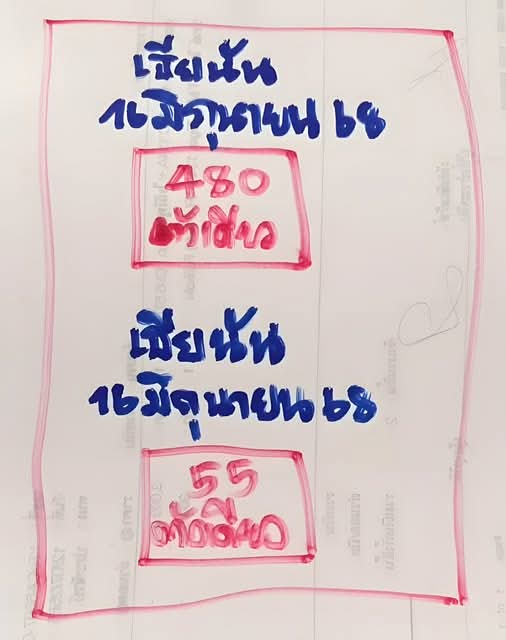 เซียนัน
16 มิถุนายน 68
480
ตัวเดียว
เซียนัน
16 มิถุนายน 68
55
ตัวเดียว